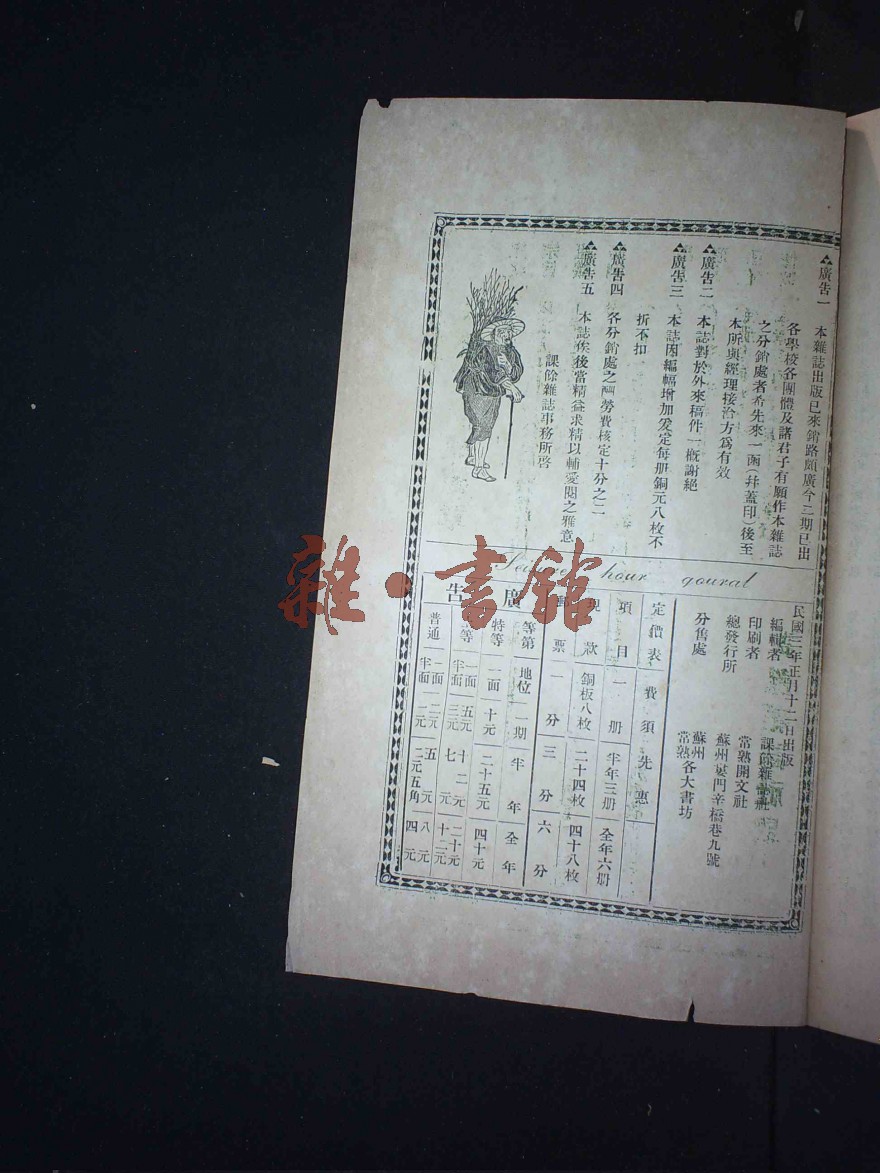 廣告一 本雜誌出版已來銷路頗廣今二期已出
各學校各團體及諸君子有願作本雜誌
之分銷處者希先來一函(幷蓋印)後至
本所與經理接洽方爲有效
廣告二 本誌對於外來稿件一槪謝絕
廣告三 本誌因編幅增加爰定每册銅元八枚不
折不扣
廣告四 各分銷處之酬勞費核定十分之二
廣告五 本誌俟後當精益求精以輔愛閱之雅意
課餘雜誌事務所啓
hour goural
民國三年正月十二日出版
編輯者 課餘雜誌社
印刷者 常熟開文社
總發行所 蘇州婁門辛橋巷九號
分售處 蘇州 常熟 各大書坊
定價表 費須先惠
項目 一册 半年三册 全年六册
現款 銅板八枚 二十四枚 四十八枚
郵票 一分 三分 六分
廣告
等第 地位 一期 半年 全年
特等 一面 十元 二十五元 四十元
一面 五元 十二元 二十元
半面 三元 七元 十二元
普通 一面 二元 五元 八元
半面 一元 二元五角 四元
雜·書館